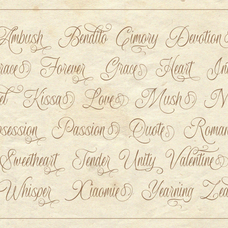 Ambush Bendito Crimory Devotion
Forever Grace Heart
Kissa Love Mush
Passion Quote
Sweetheart Tender Unity Valentine
Whisper Xiaomie Yearning